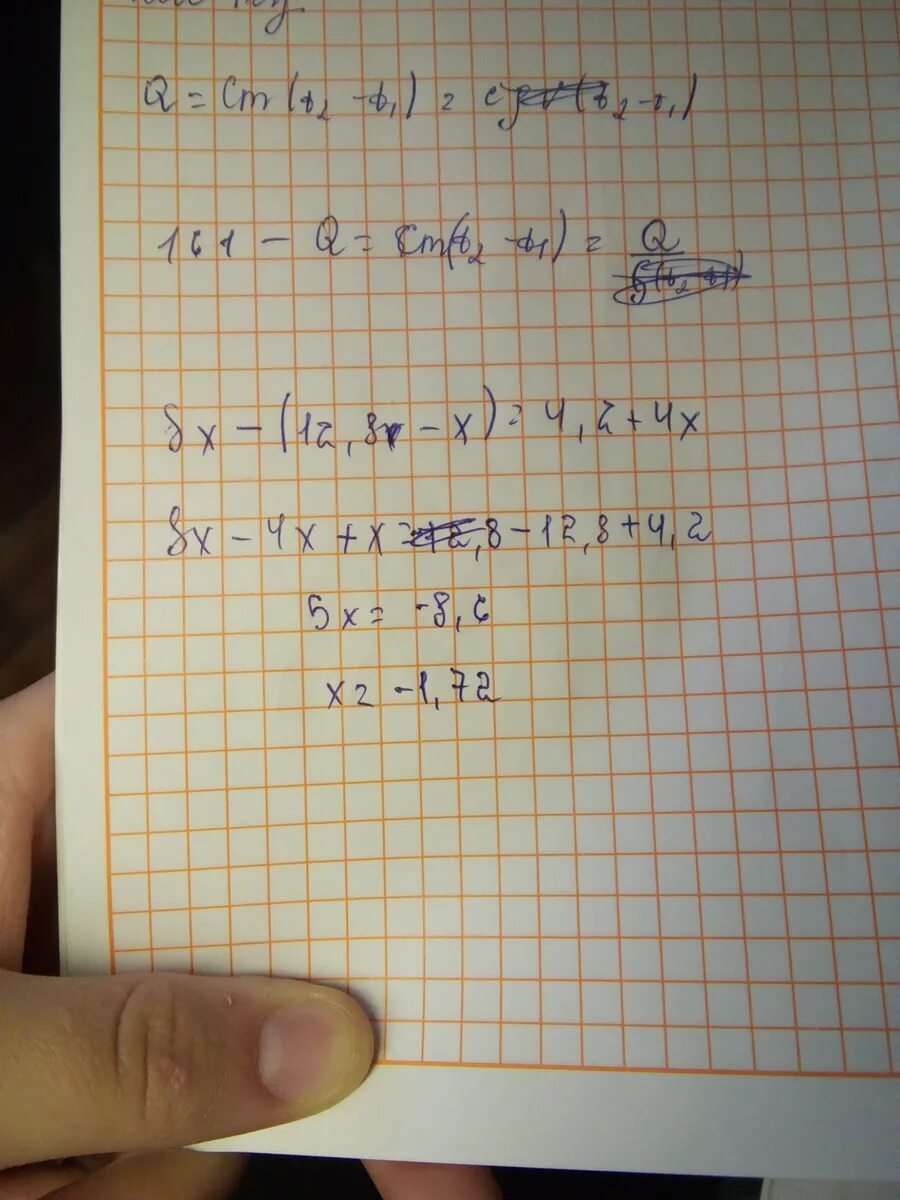 Q = Cm(t₂ - t₁) = c (t₂ - t₁)
161 - Q = Cm(t₂ - t₁) = Q
8x - (12,8 - x) = 4,2 + 4x
8x - 4x + x = ,8 - 12,8 + 4,2
5x = -8,6
x = -1,72